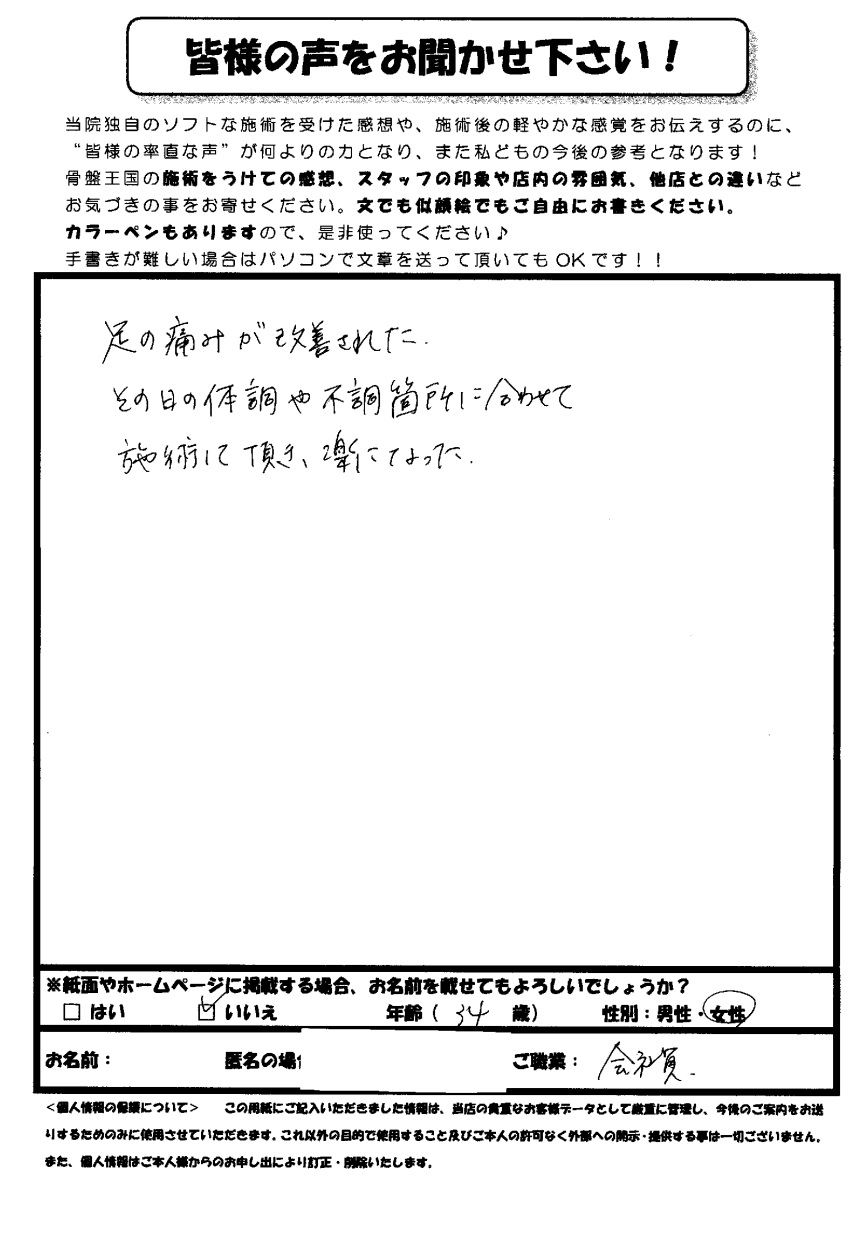 皆様の声をお聞かせ下さい！
当院独自のソフトな施術を受けた感想や、施術後の軽やかな感覚をお伝えするのに、
“皆様の率直な声”が何よりの力となり、また私どもの今後の参考となります！
骨盤王国の施術をうけての感想、スタッフの印象や店内の雰囲気、他店との違いなど
お気づきの事をお寄せください。文でも似顔絵でもご自由にお書きください。
カラーペンもありますので、是非使ってください♪
手書きが難しい場合はパソコンで文章を送って頂いてもOKです！！
足の痛みが改善された.
その日の体調や不調箇所に合わせて
施術して頂き、楽になった.
※紙面やホームページに掲載する場合、お名前を載せてもよろしいでしょうか？
□ はい ☑ いいえ 年齢（ 34 歳） 性別：男性・女性
お名前： 匿名の場 ご職業： 会社員.
＜個人情報の保護について＞ この用紙にご記入いただきました情報は、当店の貴重なお客様データとして厳重に管理し、今後のご案内をお送
りするためのみに使用させていただきます。これ以外の目的で使用すること及びご本人の許可なく外部への開示・提供する事は一切ございません。
また、個人情報はご本人様からのお申し出により訂正・削除いたします。